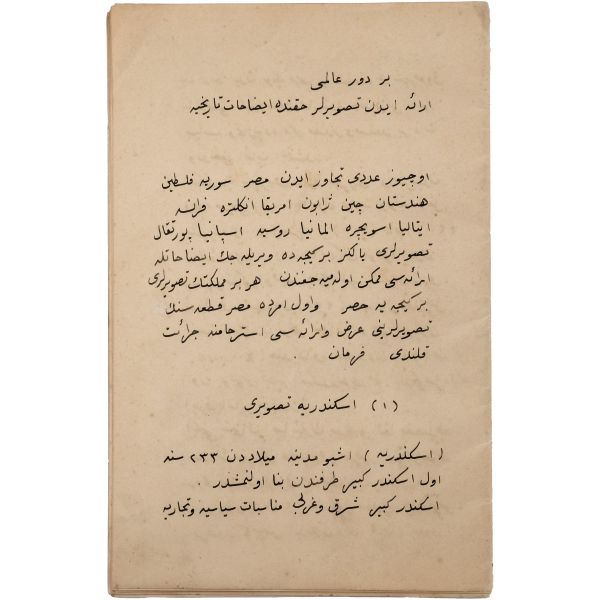 بر دور عالمی
ارائه ایدن تصویرلر حقنده ایضاحات تاریخیه
اوچیوز عددی تجاوز ایدن مصر سوریه فلسطین
هندستان چین ژاپون امریقا انکلتره فرانسه
ایتالیا اسویچره المانیا روسیه اسپانیا پورتقال
تصویرلری یالکز بر کیجه ده ویریله جك ایضاحاتله
ارائه سی ممکن اوله میه جغندن هر بر مملکتك تصویرلری
بر کیجه یه حصر واول امرده مصر قطعه سنك
تصویرلرینی عرض وارائه سی استرحامنه جرائت
قلندی فرمان .
(١) اسکندریه تصویری
(اسکندریه) اشبو مدینه میلاددن ٢٣٣ سنه
اول اسکندر کبیر طرفندن بنا اولنمشدر .
اسکندر کبیر شرق وغربی مناسبات سیاسیه وتجاریه